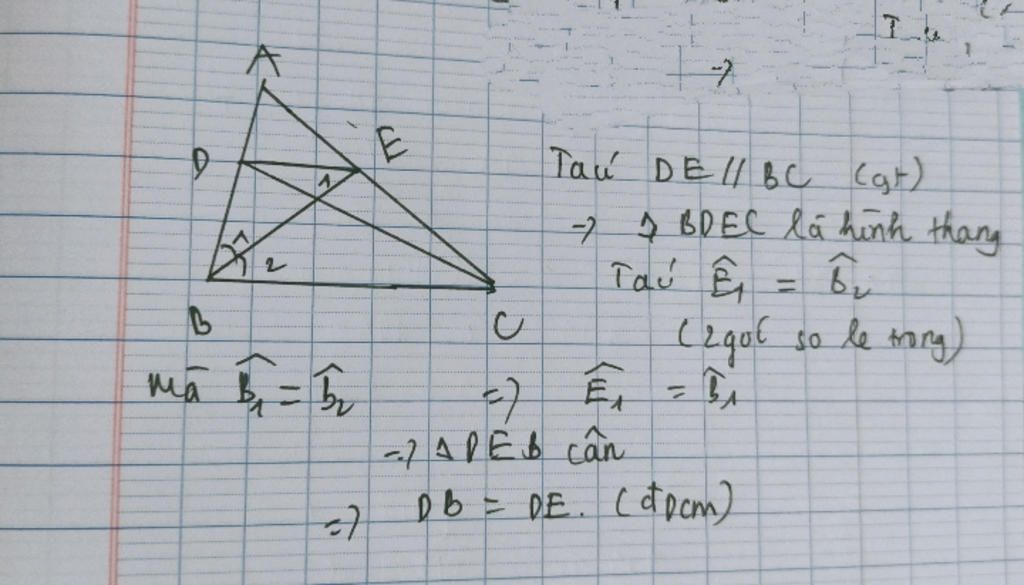 A
D
E
1
1
2
B
C
Ta có DE // BC (gt)
→ BDEC là hình thang
Ta có Ê₁ = B̂₂
(2 góc so le trong)
mà B̂₁ = B̂₂ ⇒ Ê₁ = B̂₁
⇒ Δ DEB cân
⇒ DB = DE. (đpcm)